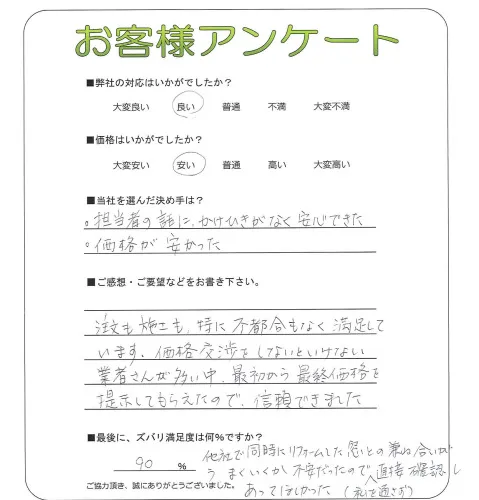 お客様アンケート
■弊社の対応はいかがでしたか？
大変良い 良い 普通 不満 大変不満
■価格はいかがでしたか？
大変安い 安い 普通 高い 大変高い
■当社を選んだ決め手は？
○担当者の話に、かけひきがなく安心できた
○価格が安かった
■ご感想・ご要望などをお書き下さい。
注文も施工も、特に不都合もなく満足して
います。価格交渉をしないといけない
業者さんが多い中、最初から最終価格を
提示してもらえたので、信頼できました
■最後に、ズバリ満足度は何％ですか？
90 ％
他社で同時にリフォームした窓との兼ね合いが
うまくいくか不安だったので、直接確認し
あってほしかった（私を通さず）
ご協力頂き、誠にありがとうございました。